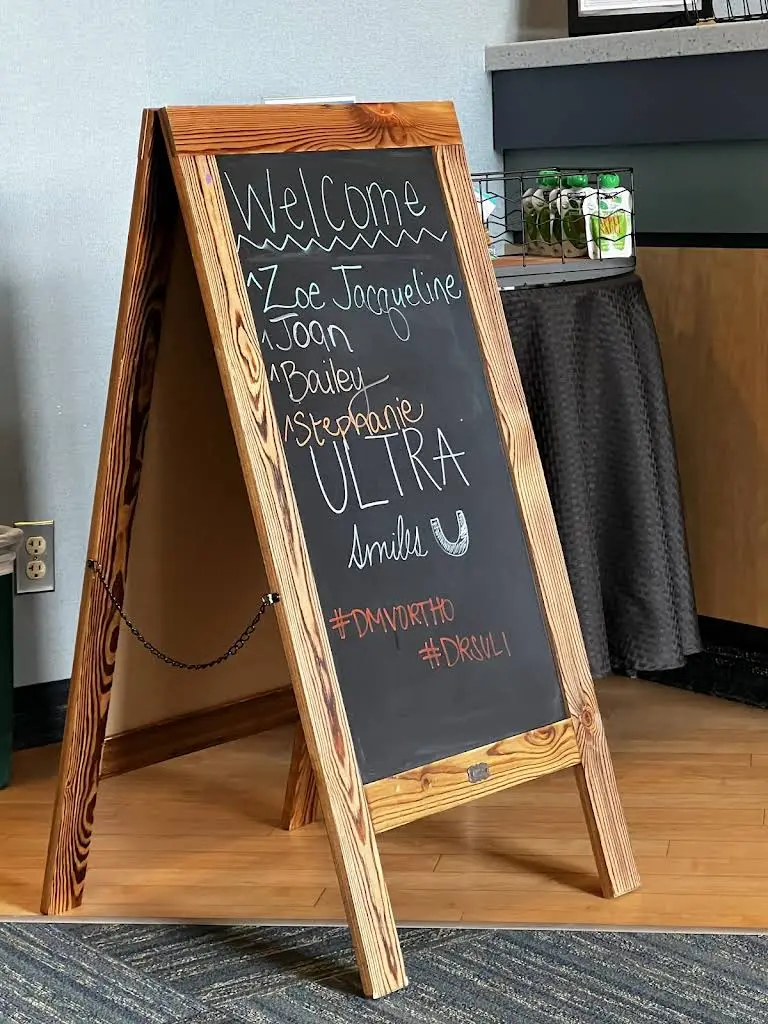 Welcome
^Zoe Jacqueline
^Joan
^Bailey
^Stephanie
ULTRA
Smiles
#DMVORTHO
#DRSULI